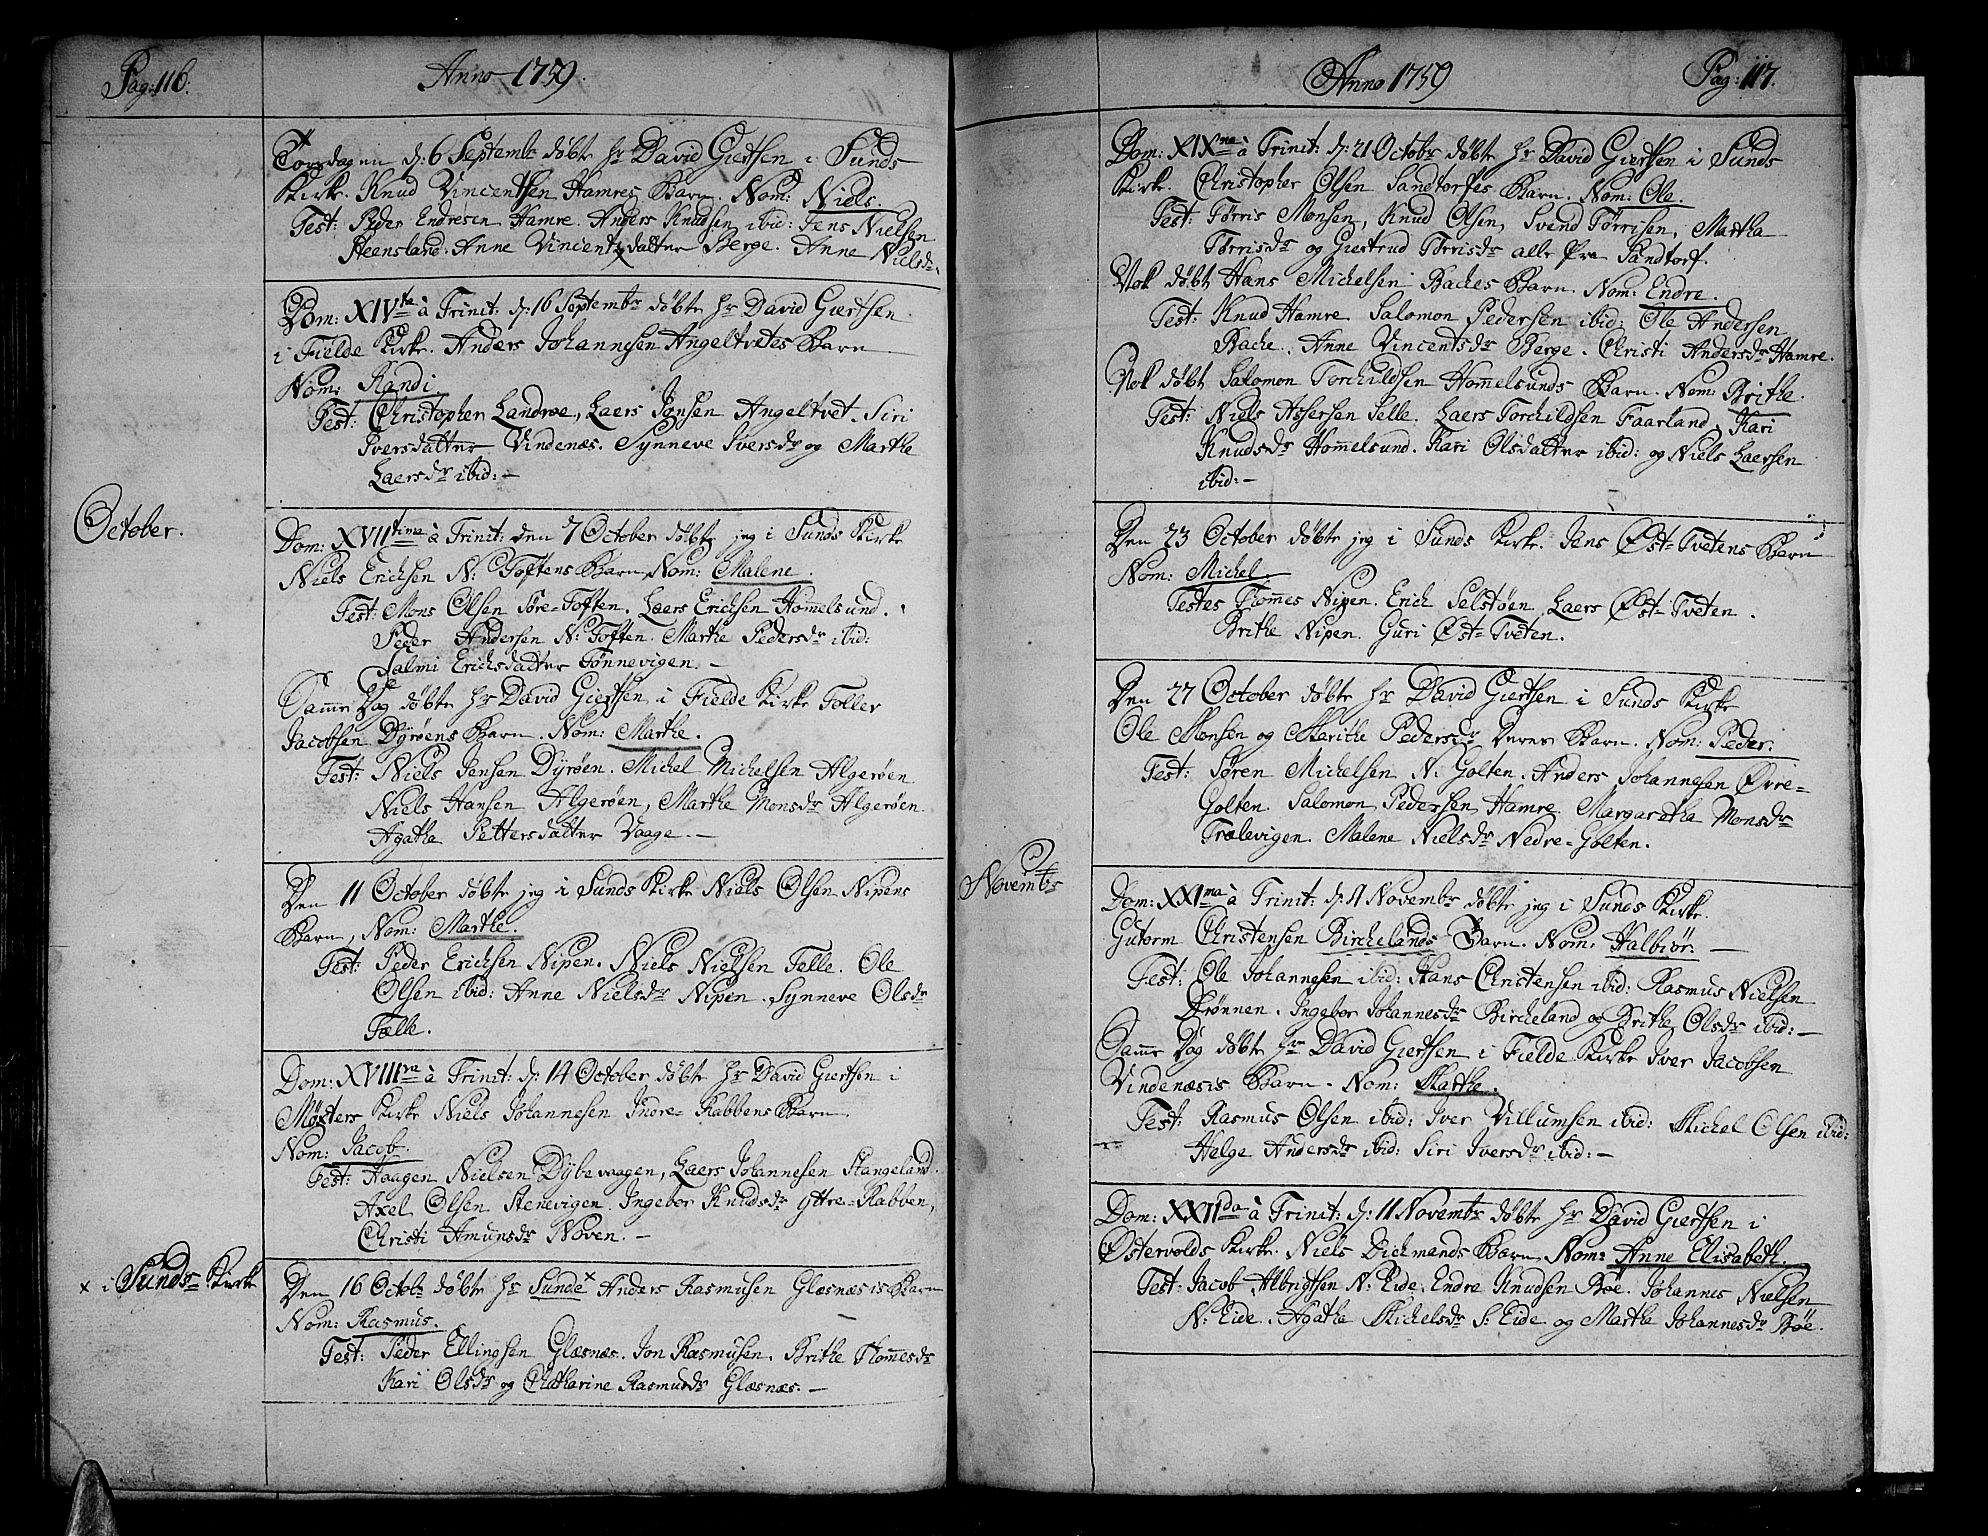 Pag: 116.
Anno 1759.
Torsdagen d: 6 Septembr døbte Hr David Giertsen i Sunds
Kirke. Knud Vincentsen Hamres Barn. Nom: Niels.
Test: Peder Endresen Hamre. Anders Knudsen ibid: Jens Nielsen
Steensland. Anne Vincentzdatter Berge. Anne Nielsdr
Dom: XIVta à Trinit: d: 16 Septembr døbte Hr David Giertsen
i Fielde Kirke. Anders Johannesen Angeltvetes Barn
Nom: Randi
Test: Christopher Landroe, Laers Jonsen Angeltvet. Siri
Iversdatter Vindenæs. Synneve Iversdr og Marthe
Laersdr ibid: -
October.
Dom: XVIItima à Trinit: den 7 October døbte jeg i Sunds Kirke
Niels Erichsen N: Toftens Barn Nom: Malene.
Test: Mons Olsen Søre-Toften. Laers Erichsen Hommelsund.
Peder Andersen N: Toften. Marthe Pedersdr ibid:
Salmi Erichsdatter Tønnevigen. -
Samme Dag døbte Hr David Giertsen i Fielde Kirke Toller
Jacobsen Dyrøens Barn. Nom: Marthe.
Test: Niels Jensen Dyrøen. Michel Michelsen Algerøen
Niels Hansen Algerøen, Marthe Monsdr Algerøen.
Agatha Pettersdatter Vaage. -
Den 11 October døbte jeg i Sunds Kirke Niels Olsen Nipens
Barn, Nom: Marthe.
Test: Peder Erichsen Nipen. Niels Nielsen Telle. Ole
Olsen ibid: Anne Nielsdr Nipen. Synneve Olsdr
Tælle.
Dom: XVIIIva à Trinit: d: 14 October døbte Hr David Giertsen i
Møsters Kirke Niels Johannesen Indre-Rabbens Barn
Nom: Jacob.
Test: Haagen Nielsen Dybevaagen, Laers Johannesen Stangeland.
Axel Olsen Stenevigen. Ingebor Knudsdr Yttre-Rabben,
Christi Amunsdr Noven. -
x i Sunds Kirke
Den 16 Octobr døbte Hr Sunde x Anders Rasmusen Glæsnæsis Barn
Nom: Rasmus.
Test: Peder Ellingsen Glæsnæs. Jon Rasmusen. Brithe Thomesdr
Kari Olsdr og Chatharine Rasmusdr Glæsnæs. -
Anno 1759
Pag: 117.
Dom: XIXna à Trinit: d: 21 Octobr døbte Hr David Giertsen i Sunds
Kirke. Christopher Olsen Sandtorfes Barn. Nom: Ole.
Test: Tørris Monsen, Knud Olsen, Svend Tørrisen, Martha
Tørrisdr og Giertrud Tørrisdr alle fra Sandtorf.
Nok døbt Hans Michelsen Baches Barn. Nom: Endre.
Test: Knud Hamre Salomon Pedersen ibid: Ole Andersen
Bache. Anne Vincentsdr Berge. Christi Andersdr Hamre.
Nok døbt Salomon Torchildsen Hommelsunds Barn. Nom: Brithe.
Test: Niels Assersen Selle. Laers Torchildsen Faarland. Kari
Knudsdr Hommelsund. Kari Olsdatter ibid: og Niels Laersen
ibid: -
Den 23 October døbte jeg i Sunds Kirke. Jens Øst-Tvetens Barn
Nom: Michel.
Testes Thommes Nipen. Erich Selstøen. Laers Øst-Tveten.
Brithe Nipen. Guri Øst-Tveten.
Den 27 October døbte Hr David Giertsen i Sunds Kirke
Ole Monsen og Marithe Pedersdr deres Barn. Nom: Peder.
Test: Søren Michelsen N. Golten. Anders Johannesen Øvre-
Golten. Salomon Pedersen Hamre. Margaretha Monsdr
Trælevigen. Malene Nielsdr Nedre-Golten.
Novembr
Dom: XXIma à Trinit: d: 4 Novembr døbte jeg i Sunds Kirke.
Gutorm Christensen Birchelands Barn. Nom: Halbiør. -
Test: Ole Johannesen ibid: Hans Christensen ibid: Rasmus Nielsen
Drønnen. Ingebor Johannesdr Bircheland og Brithe Olsdr ibid: -
Samme Dag døbte Hr David Giertsen i Fielde Kirke Iver Jacobsen
Vindenæsis Barn. Nom: Marthe.
Test: Rasmus Olsen ibid: Iver Villumsen ibid: Michel Olsen ibid:
Helge Andersdr ibid: Siri Iversdr ibid: -
Dom: XXIIda à Trinit: d: 11 Novembr døbte Hr David Giertsen i
Østervolds Kirke. Niels Dichmands Barn Nom: Anne Elisabeth.
Test: Jacob Albrigtsen N: Eide. Endre Knudsen Bøe. Johannes Nielsen
N: Eide. Agatha Michelsdr S: Eide og Martha Johannesdr Bøe.